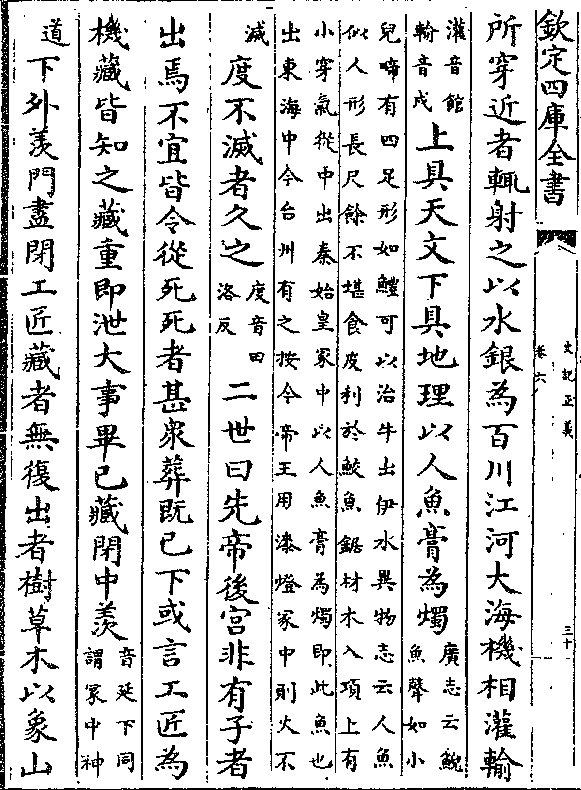 欽定四庫全書
史記正義
卷六
三十
所穿近者輒射之以水銀為百川江河大海機相灌輸
灌音館
輸音戍
上具天文下具地理以人魚膏為燭
廣志云鯢
魚聲如小
兒啼有四足形如鱧可以治牛出伊水異物志云人魚
似人形長尺餘不堪食皮利於鮫魚鋸材木入項上有
小穿氣從中出秦始皇冢中以人魚膏為燭即此魚也
出東海中今台州有之按今帝王用漆燈冢中則火不
滅
度不滅者久之
度音田
洛反
二世曰先帝後宮非有子者
出焉不宜皆令從死死者甚衆葬既已下或言工匠為
機藏皆知之藏重即泄大事畢已藏閉中羨
音延下同
謂冢中神
道
下外羨門盡閉工匠藏者無復出者樹草木以象山